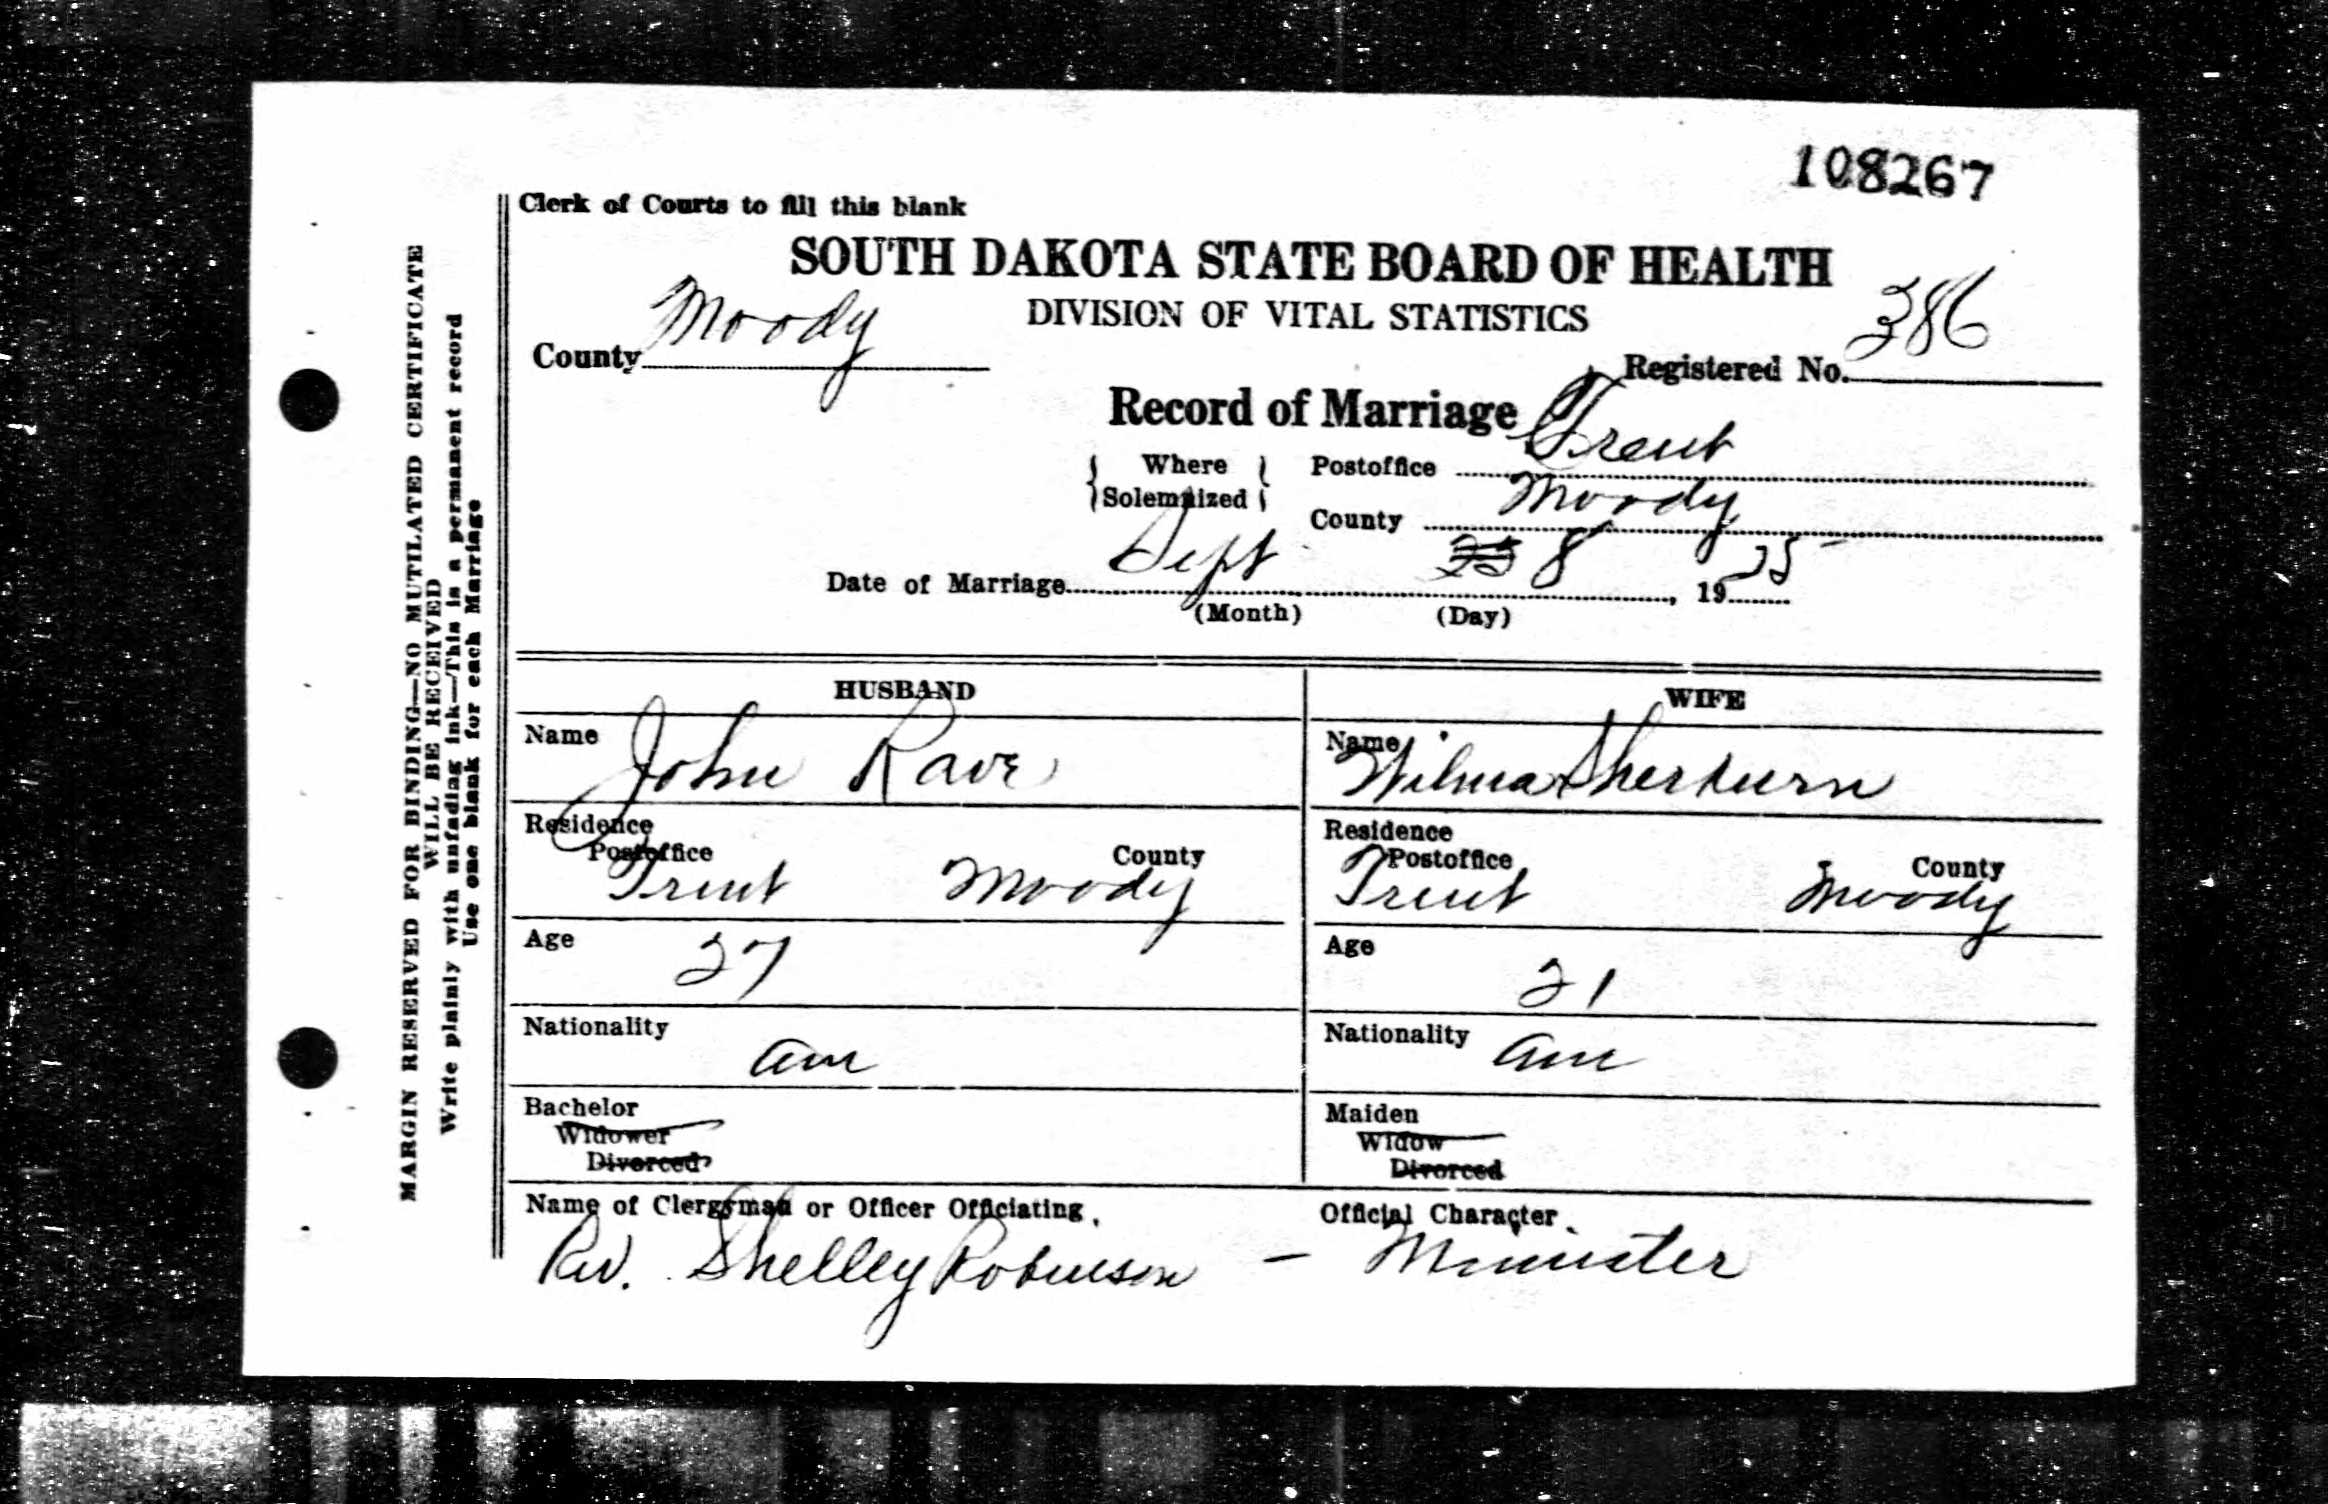 108267
Clerk of Courts to fill this blank
SOUTH DAKOTA STATE BOARD OF HEALTH
DIVISION OF VITAL STATISTICS
County Moody
Registered No. 386
Record of Marriage
Where Solemnized
Postoffice Trent
County Moody
Date of Marriage Sept 8, 1925
(Month) (Day)
HUSBAND
Name John Rave
Residence
Postoffice County
Trent Moody
Age 27
Nationality am
Bachelor
Widower
Divorced
WIFE
Name Wilma Sherburn
Residence
Postoffice County
Trent Moody
Age 21
Nationality am
Maiden
Widow
Divorced
Name of Clergyman or Officer Officiating, Official Character
Rev. Shelley Robinson — Minister
MARGIN RESERVED FOR BINDING—NO MUTILATED CERTIFICATE
WILL BE RECEIVED
Write plainly with unfading ink—This is a permanent record
Use one blank for each Marriage